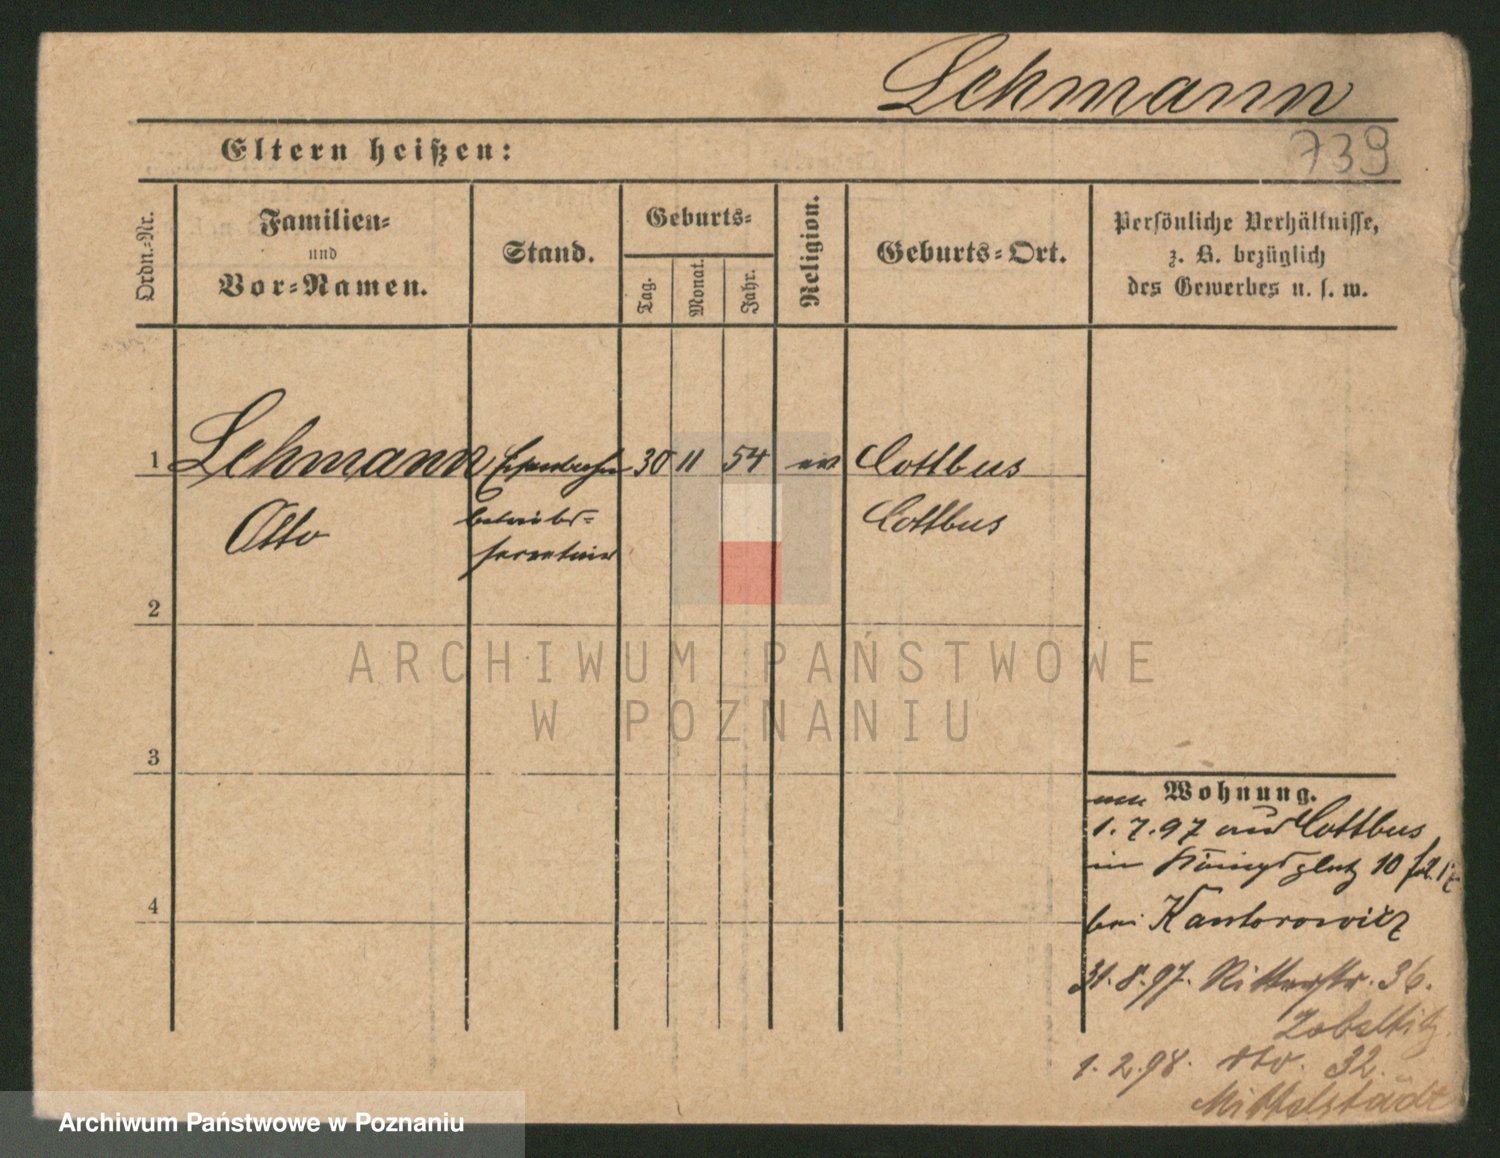 Lehmann
739
Eltern heißen:
Ordn.-Nr.
Familien-
und
Vor-Namen.
Stand.
Geburts-
Tag.
Monat.
Jahr.
Religion.
Geburts-Ort.
Persönliche Verhältnisse,
z. B. bezüglich
des Gewerbes u. s. w.
1 Lehmann Eisenbahn 30 11 54 ev Cottbus
Otto betriebs- Cottbus
secretair
2
3
4
ARCHIWUM PAŃSTWOWE
W POZNANIU
Wohnung.
1.7.97 aus Cottbus
Königsplatz 10
bei Kantorowicz
31.8.97. Ritterstr. 36.
Zobeltitz
1.2.98. 32.
Mittelstädt
Archiwum Państwowe w Poznaniu